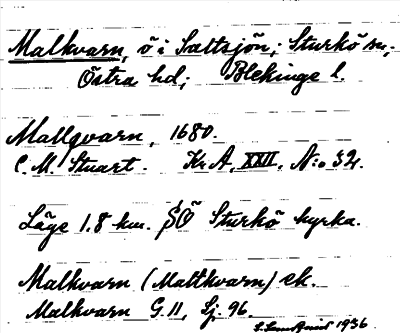 Malkvarn, ö i Saltsjön; Sturkö sn;
Östra hd; Blekinge l.
Mallqvarn, 1680.
C. M. Stuart. Kr. A. XXII. N:o 32.
Läge 1.8 km. SÖ Sturkö kyrka.
Malkvarn (Mattkvarn) ek.
Malkvarn G. 11, Sj. 96.
1936